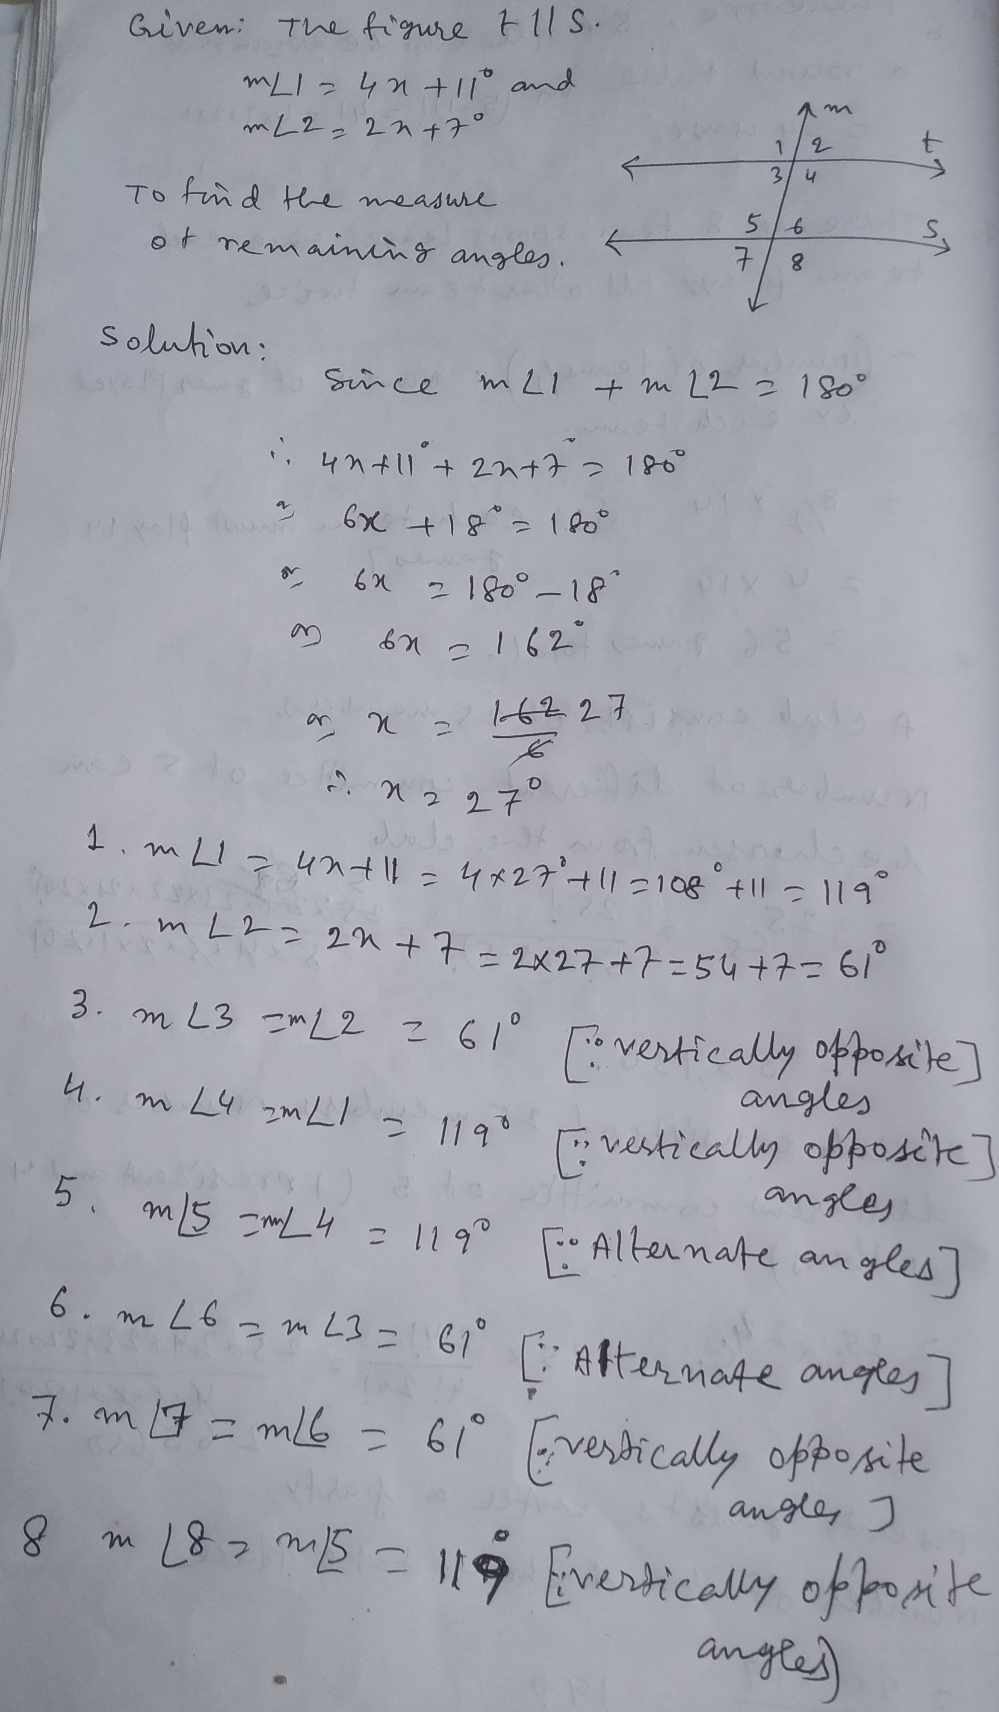 Given: The figure t || S.
m∠1 = 4x + 11° and
m∠2 = 2x + 7°
m
1 2
t
3 4
To find the measure
of remaining angles.
5 6
S
7 8
Solution:
Since m∠1 + m∠2 = 180°
∴ 4x + 11° + 2x + 7° = 180°
or 6x + 18° = 180°
or 6x = 180° - 18°
or 6x = 162°
or x = 162/6 27
∴ x = 27°
1. m∠1 = 4x + 11 = 4×27° + 11 = 108° + 11 = 119°
2. m∠2 = 2x + 7 = 2×27 + 7 = 54 + 7 = 61°
3. m∠3 = m∠2 = 61° [∵ vertically opposite]
angles
4. m∠4 = m∠1 = 119° [∵ vertically opposite]
angles
5. m∠5 = m∠4 = 119° [∵ Alternate angles]
6. m∠6 = m∠3 = 61° [∵ Alternate angles]
7. m∠7 = m∠6 = 61° [∵ vertically opposite
angles]
8 m∠8 = m∠5 = 119° [∵ vertically opposite
angles]